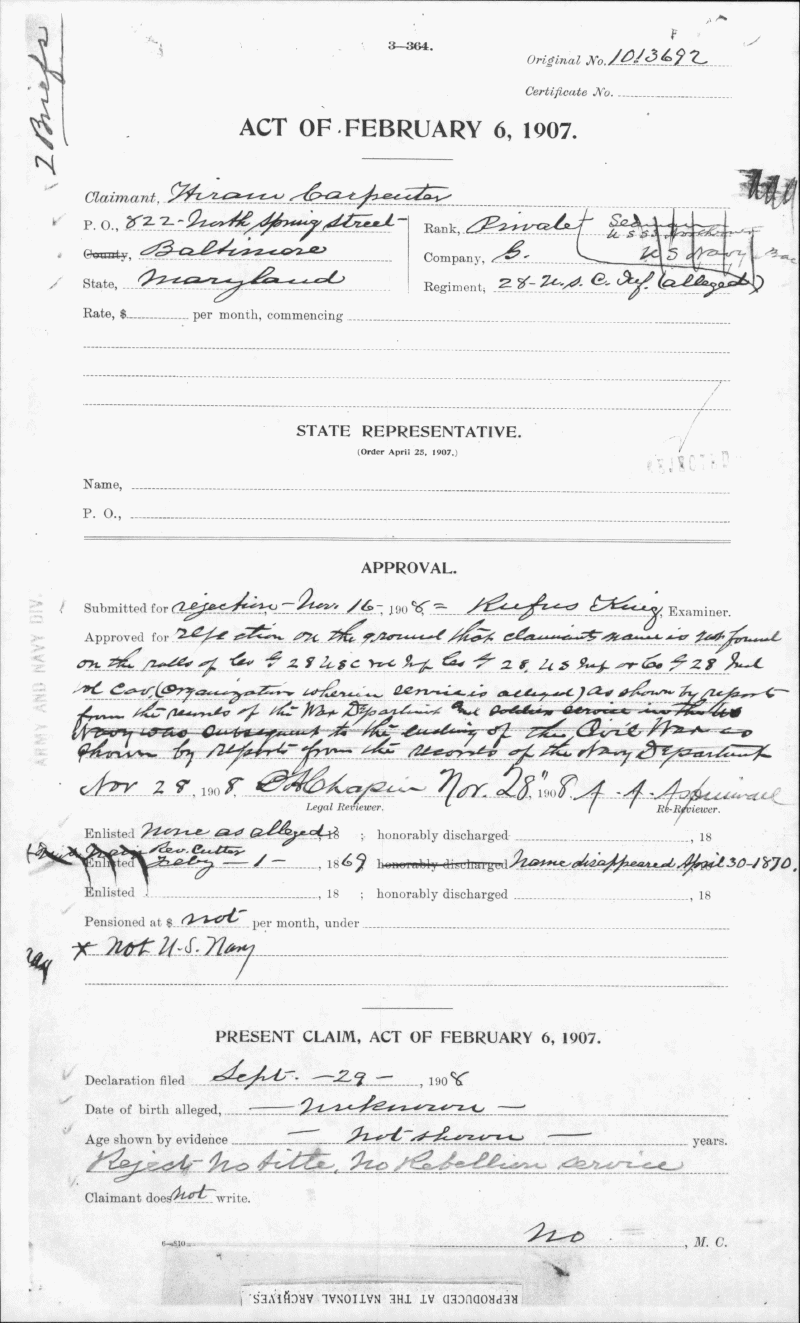 3—364.
Original No. 1013692
Certificate No.
2 Briefs
ACT OF FEBRUARY 6, 1907.
Claimant, Hiram Carpenter
P. O., 822- North Spring Street-
Rank, Private
U.S.S.
County, Baltimore
Company, G.
U S Navy
State, Maryland
Regiment, 28- U.S. C. Inf. (alleged)
Rate, $ per month, commencing
STATE REPRESENTATIVE.
(Order April 25, 1907.)
Name,
P. O.,
APPROVAL.
ARMY AND NAVY DIV.
Submitted for rejection- Nov. 16-, 1908, = Rufus King, Examiner.
Approved for rejection on the ground that claimant's name is not found
on the rolls of Co G 28 USC vol Inf Co G 28, US Inf or Co G 28 Ind
vol Cav, (organization wherein service is alleged) as shown by reports
from the records of the War Department and soldier's service in the US
Navy was subsequent to the ending of the Civil War as
shown by reports from the records of the Navy Department
Nov 28, 1908. Chapin Nov. 28", 1908, A. A. Aspinwall
Legal Reviewer. Re-Reviewer.
Enlisted None as alleged, 18 ; honorably discharged , 18
Rev. Cutter
Enlisted Feby - 1 -, 1869 honorably discharged Name disappeared April 30-1870.
Enlisted , 18 ; honorably discharged , 18
Pensioned at $ not per month, under
x Not U.S. Navy
PRESENT CLAIM, ACT OF FEBRUARY 6, 1907.
Declaration filed Sept. -29-, 1908
Date of birth alleged, — unknown —
Age shown by evidence — not shown — years.
Reject- No title, No Rebellion service
Claimant does not write.
No , M. C.
6—310
REPRODUCED AT THE NATIONAL ARCHIVES